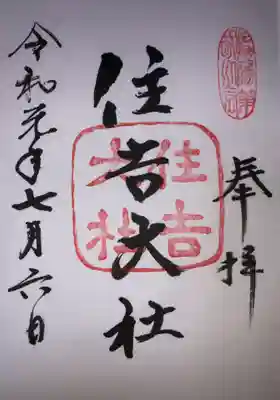 奉拝
住吉大社
住吉大社
令和元年七月六日